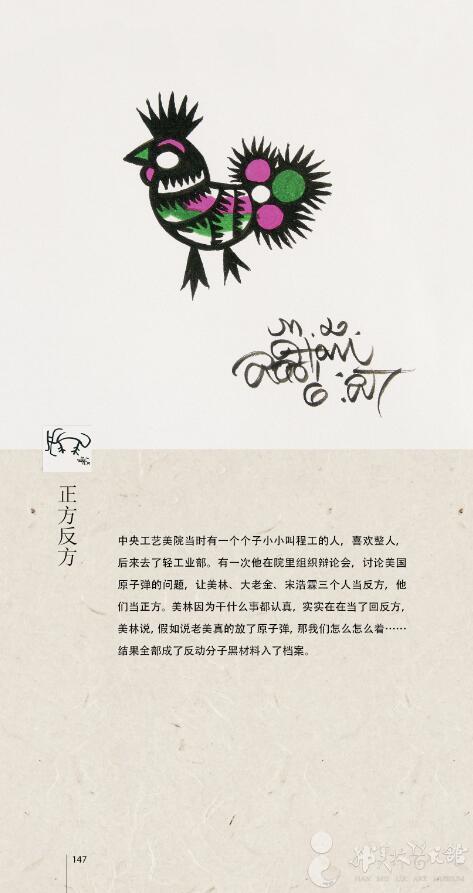 正方反方
中央工艺美院当时有一个个子小小叫程工的人，喜欢整人，
后来去了轻工业部。有一次他在院里组织辩论会，讨论美国
原子弹的问题，让美林、大老金、宋浩霖三个人当反方，他
们当正方。美林因为干什么事都认真，实实在在当了回反方，
美林说，假如说老美真的放了原子弹，那我们怎么怎么着……
结果全部成了反动分子黑材料入了档案。
147
韩美林艺术馆
HAN MEI LIN ART MUSEUM